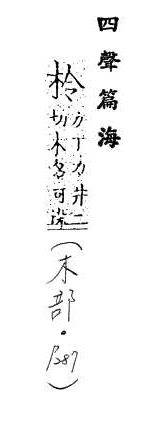 四聲篇海
柃
力丁力井二
切木名可染
(木部・